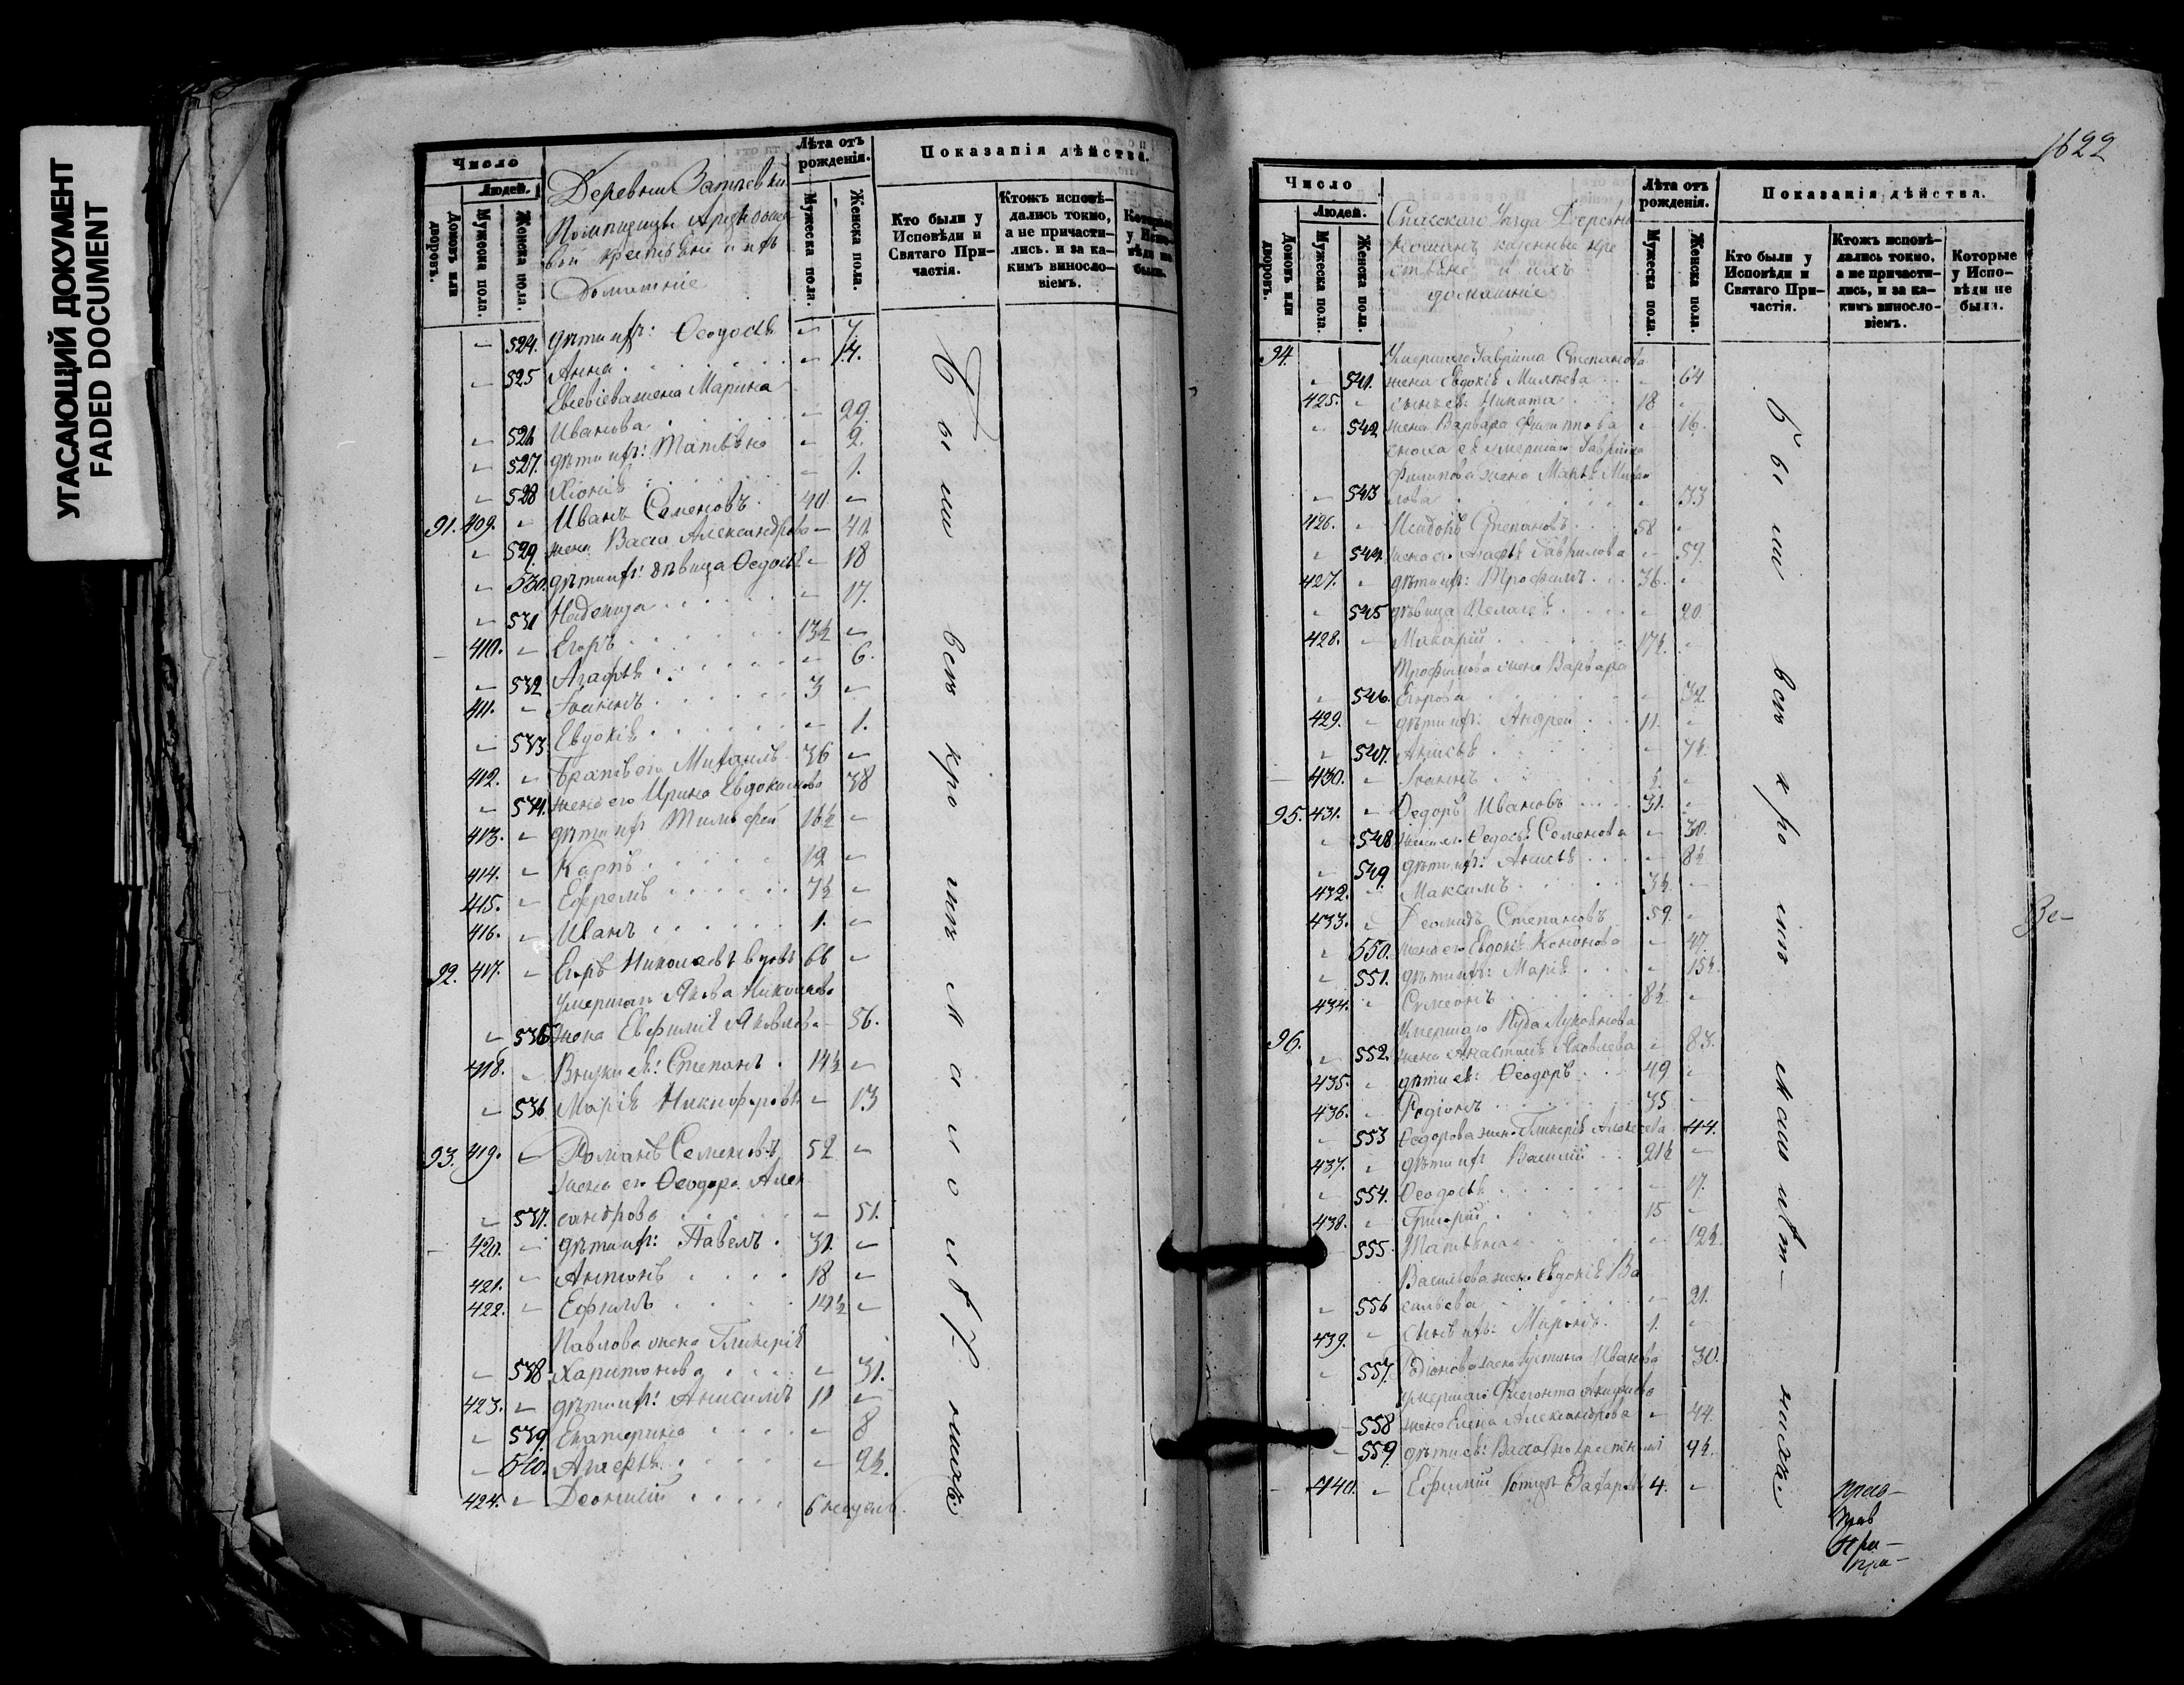 УГАСАЮЩИЙ ДОКУМЕНТ
FADED DOCUMENT
Число
Людей.
Домовъ или дворовъ.
Мужеска пола.
Женска пола.
Деревни
крестьяне и ихъ
Домашніе
Лѣта отъ рожденія.
Мужеска пола.
Женска пола.
Показанія дѣйства.
Кто были у Исповѣди и Святаго Причастія.
Ктожъ исповѣдались токмо, а не причастились. и за какимъ винословіемъ.
Которые у Исповѣди не были.
524. дѣти ихъ: Ѳеодосія 7.
525 Анна 14.
Евсевіева жена Марина
526 Иванова 29.
527. дѣти ихъ: Татіяна 2.
528 Хіонія 1.
91. 409. Иванъ Семеновъ 40
529. жена Васса Александрова 40.
530. дѣти ихъ: дѣвица Ѳедосья 18
531 Надежда 17.
410. Егоръ 13½
532 Агафья 6.
411. Іоаннъ 3
533 Евдокія 1.
412. Братъ его Михаилъ 36
534. жена его Ирина Евдокимова 38
413. дѣти ихъ Тимофей 16½
414. Карпъ 12
415. Ефремъ 7½
416. Иванъ 1.
92. 417. Егоръ Николаевъ вдовъ 66
умершаго Якова Николаева
535 жена Евфимія Яковлева 56.
418. Внуки ея: Степанъ 14½
536 Марія Никифорова 13
93. 419. Романъ Семеновъ 52
жена его Ѳеодора Алек
537. сандрова 51.
420. дѣти ихъ: Павелъ 31.
421. Антонъ 18
422. Ефимъ 14½
Павлова жена Гликерія
538 Харитонова 31.
423. дѣти ихъ: Анисимъ 11
539. Екатерина 8
540. 2½.
424. Діонисій 6 недель.
Были всѣ кромѣ малолѣтнихъ
1622
Число
Людей.
Домовъ или дворовъ.
Мужеска пола.
Женска пола.
Спасскаго Уѣзда Деревни
казенные кре
стьяне и ихъ
домашніе
Лѣта отъ рожденія.
Мужеска пола.
Женска пола.
Показанія дѣйства.
Кто были у Исповѣди и Святаго Причастія.
Ктожъ исповѣдались токмо, а не причастились, и за какимъ винословіемъ.
Которые у Исповѣди не были.
94. Умершаго Гавріила Степанова
541. жена Евдокія 64
425. сынъ ея: Никита 18
542 жена Варвара Филиппова 16.
сноха ея умершаго Гавріила
Филипова жена Марья Михаи
543 лова 33
426. Исидоръ Степановъ 58
544. жена его Агафья Гаврилова 59.
427. дѣти ихъ: Трофимъ 36.
545 дѣвица Пелагея 20.
428. Макарій 17½.
Трофимова жена Варвара
546. Егорова 32
429. дѣти ихъ: Андрей 11.
547. Анисья 7½
430. Іоаннъ
95. 431. Ѳедоръ Ивановъ 31.
548 жена его Ѳедосья Семенова 30.
549. дѣти ихъ: Анисья 8½
432. Максимъ 3½.
433. Деомидъ Степановъ 59.
550. жена его Евдокія Кононова 47.
551. дѣти ихъ: Марія 15½.
434. Симеонъ 8½.
96. Умершаго
552. жена Анастасія Яковлева 83.
435. дѣти ея: Ѳеодоръ 49
436. Родіонъ 35
553 Ѳедорова жена Гликерія Алексеева 44.
437. дѣти ихъ Василій 21½
554. Ѳеодосья 17.
438. Григорій 15
555. Татіяна 12½.
Васильева жена Евдокія Ва
556 сильева 21.
439. сынъ ихъ: Миронъ 1.
557. Родіонова жена Устинья Иванова 30.
умершаго
558 жена Елена Александрова 44.
559. дѣти ея: 9½.
440. Ефимій 4.
Были всѣ кромѣ малолѣтнихъ